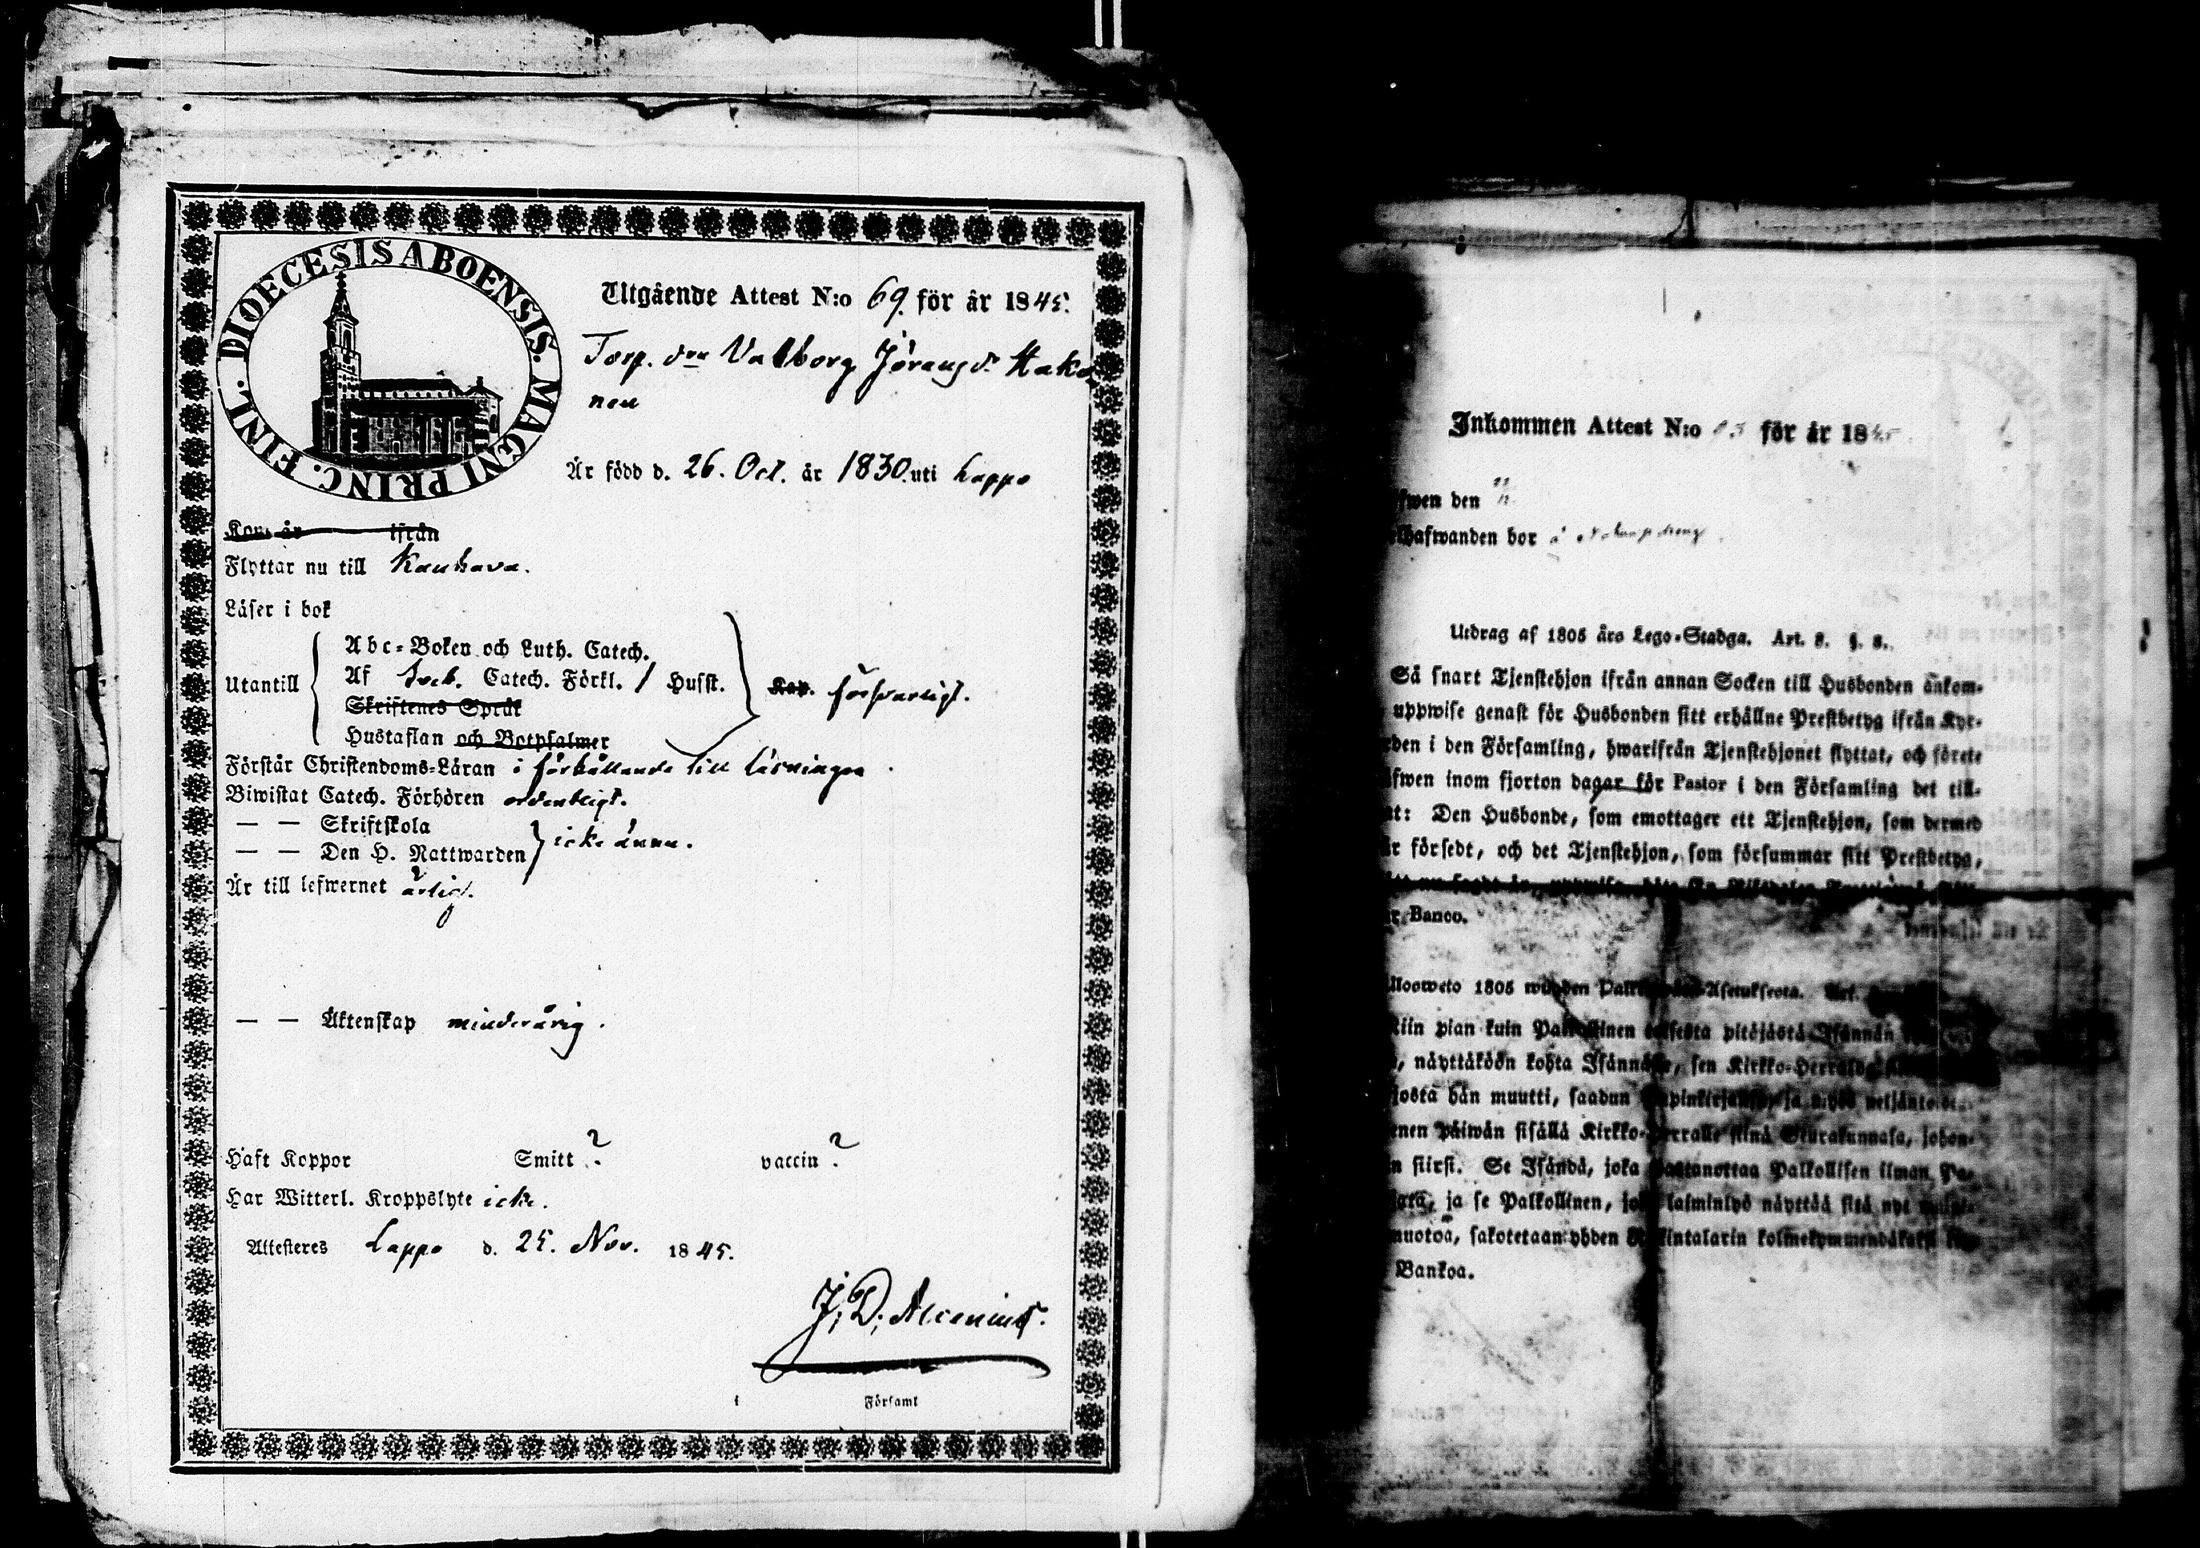 DIOECESIS ABOENSIS. MAGNI PRINC. FINL.
Utgående Attest N:o 69. för år 1845.
Torp. drn Valborg Jöransdr Hako
nen
Är född d. 26. Oct. år 1830. uti Lappo
Kom år ifrån
Flyttar nu till Kauhava.
Läser i bok
Abc-Boken och Luth. Catech.
Utantill Af Sveb. Catech. Förkl. / Husst. Kap. försvarligt.
Skriftenes Språk
Hustaflan och Botpsalmer
Förstår Christendoms-Läran i förhållande till läsningen.
Biwistat Catech. Förhören ordentligt.
— — Skriftskola
— — Den H. Nattwarden icke ännu.
Är till lefwernet ärligt.
— — Äktenskap minderårig.
Haft Koppor Smitt? vaccin?
Har Witterl. Kroppslyte icke.
Attesteres Lappo d. 25. Nov. 1845.
J. D. Alcenius.
i Församl
Inkommen Attest N:o för år 1845
fwen den
hafwanden bor å
Utdrag af 1805 års Lego-Stadga. Art. 8. §. 8.
Så snart Tjenstehjon ifrån annan Socken till Husbonden ankom-
uppwise genast för Husbonden sitt erhållne Prestbetyg ifrån Kyr-
den i den Församling, hwarifrån Tjenstehjonet flyttat, och förete
fwen inom fjorton dagar för Pastor i den Församling det till-
t: Den Husbonde, som emottager ett Tjenstehjon, som dermed
r försedt, och det Tjenstehjon, som försummar sitt Prestbetyg,
r Banco.
wuoden Asetuksesta.
Niin pian kuin Palkollinen toisesta pitäjästä Isännän
, näyttäköön kohta Isännälle, sen Kirkko-Herralda
josta hän muutti, saadun ja myös neljäntoist
enen päiwän sisällä Kirkko-Herralle siinä Seurakunnasa, johon-
n siirsi. Se Isändä, joka wastanottaa Palkollisen ilman Pa-
ja se Palkollinen, joka laiminlyö näyttää sitä nyt
muotoa, sakotetaan yhden Riikintalarin kolmekymmendäkaksi
Bankoa.